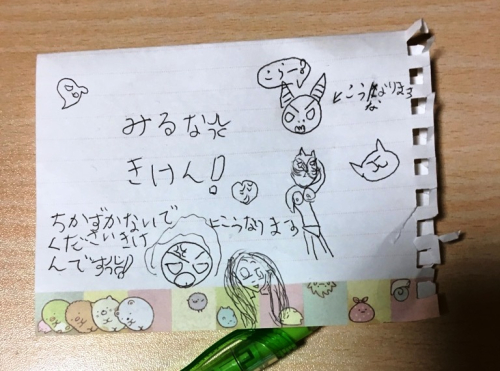 こらー!
←こうなります
な
みるなっ
きけん!
ちかずかないで
くださいきけ
んですっ
←こうなります